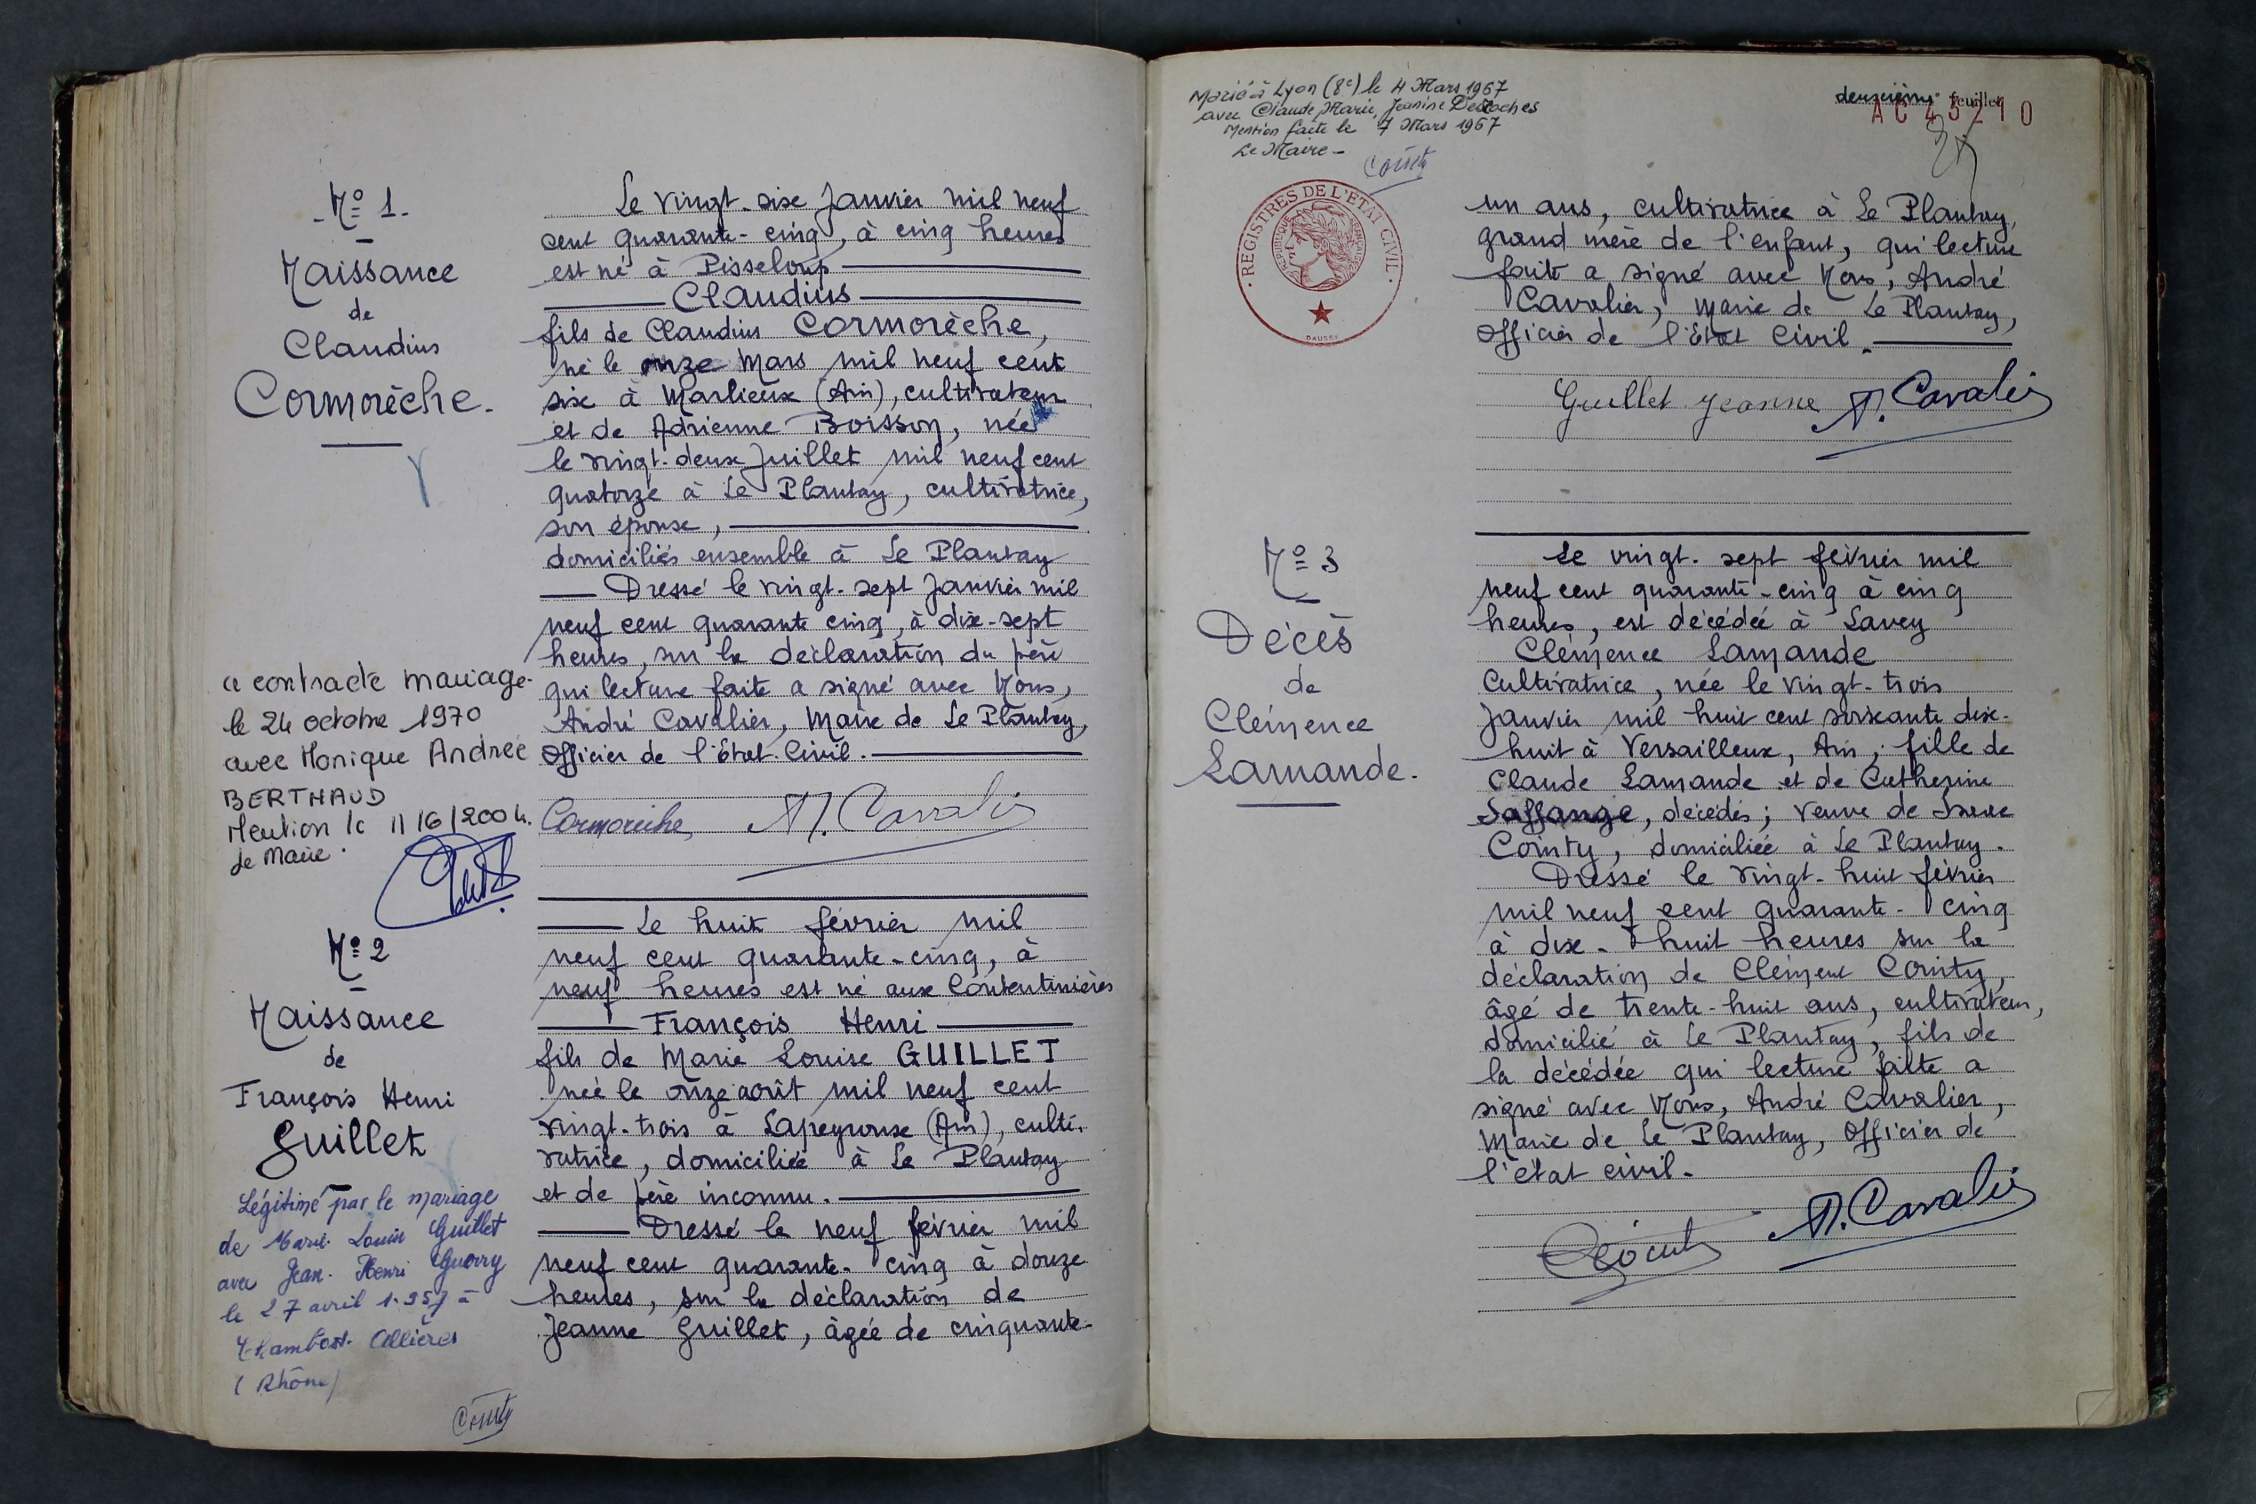 - Nº 1 -
Naissance
de
Claudius
Cormorèche.
Le vingt-six Janvier mil neuf
cent quarante-cinq, à cinq heures
est né à Pisseloup
Claudius
fils de Claudius Cormorèche,
né le onze Mars mil neuf cent
six à Marlieux (Ain), cultivateur
et de Adrienne Boisson, née
le vingt-deux Juillet mil neuf cent
quatorze à Le Plantay, cultivatrice,
son épouse,
domiciliés ensemble à Le Plantay
Dressé le vingt-sept Janvier mil
neuf cent quarante cinq, à dix-sept
heures, sur la déclaration du père
qui lecture faite a signé avec Nous,
André Cavalier, Maire de Le Plantay,
Officier de l'État Civil.
Cormorèche A. Cavalier
a contracté mariage
le 24 octobre 1970
avec Monique Andrée
BERTHAUD
Mention le 11/6/2004.
Le Maire.
Nº 2
Naissance
de
François Henri
Guillet
Légitimé par le mariage
de Marie Louise Guillet
avec Jean-Henri Guerry
le 27 avril 1957 à
Chambost-Allières
(Rhône)
Comty
Le huit février mil
neuf cent quarante-cinq, à
neuf heures est né aux Contentinières
François Henri
fils de Marie Louise GUILLET
née le onze août mil neuf cent
vingt-trois à Lapeyrouse (Ain), culti-
vatrice, domiciliée à Le Plantay
et de père inconnu.
Dressé le neuf février mil
neuf cent quarante-cinq à douze
heures, sur la déclaration de
Jeanne Guillet, âgée de cinquante-
Marié à Lyon (8e) le 4 Mars 1967
avec Claude, Marie, Jeanine
Mention faite le 7 Mars 1967
Le Maire -
Comty
deuxième feuillet
AC 45210
REGISTRES DE L'ÉTAT CIVIL
RÉPUBLIQUE FRANÇAISE
un ans, cultivatrice à Le Plantay,
grand mère de l'enfant, qui lecture
faite a signé avec Nous, André
Cavalier, Maire de Le Plantay,
Officier de l'État Civil.
Guillet Jeanne A. Cavalier
Nº 3
Décès
de
Clémence
Lamande.
Le vingt-sept février mil
neuf cent quarante-cinq à cinq
heures, est décédée à Lavey
Clémence Lamande
Cultivatrice, née le vingt-trois
Janvier mil huit cent soixante dix-
huit à Versailleux, Ain, fille de
Claude Lamande et de Catherine
Saffange, décédés; veuve de
Comty, domiciliée à Le Plantay.
Dressé le vingt-huit février
mil neuf cent quarante-cinq
à dix-huit heures sur la
déclaration de Clément Comty,
âgé de trente-huit ans, cultivateur,
domicilié à Le Plantay, fils de
la décédée qui lecture faite a
signé avec Nous, André Cavalier,
Maire de Le Plantay, Officier de
l'état civil.
A. Cavalier